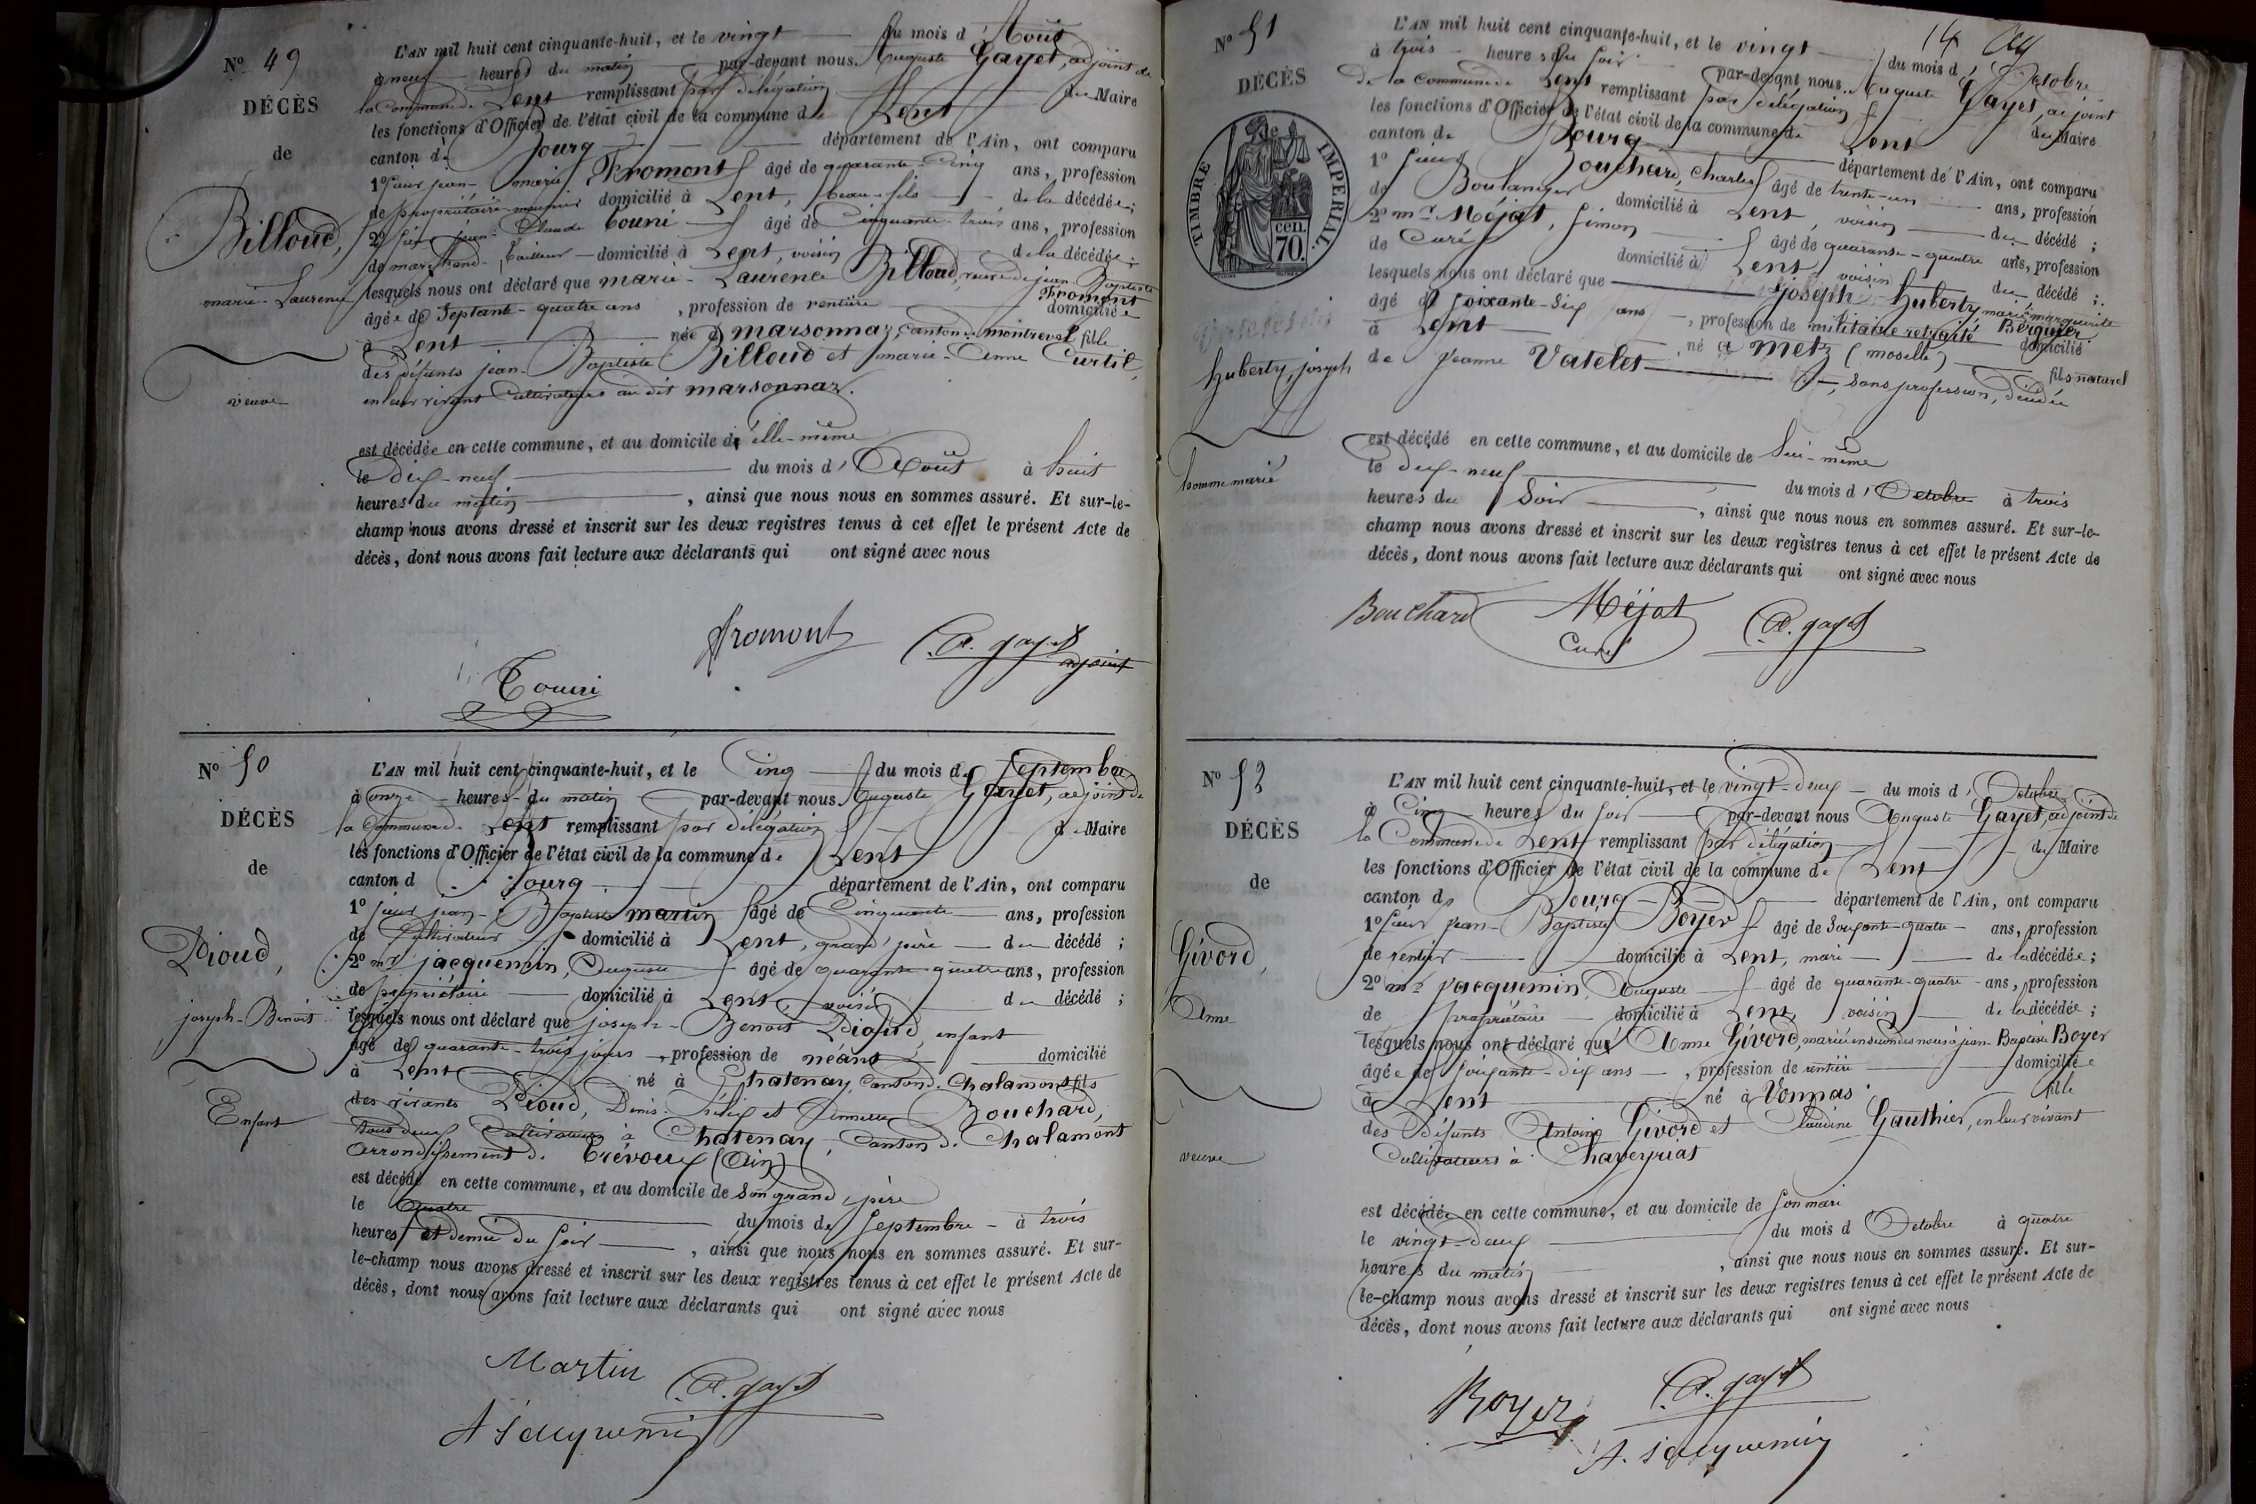 N° 49
DÉCÈS
de
Billoud,
marie-Laurence
veuve
L'AN mil huit cent cinquante-huit, et le vingt du mois d'Août
à neuf heures du matin par-devant nous Auguste Gayet, adjoint de
la Commune de Lent remplissant par délégation du Maire
les fonctions d'Officier de l'état civil de la commune de Lent
canton de Bourg département de l'Ain, ont comparu
1° Sieur jean-marie Fromont âgé de quarante-cinq ans, profession
de propriétaire-meunier domicilié à Lent, beau-fils de la décédée;
2° Sieur jean-Claude Couni âgé de Cinquante-trois ans, profession
de marchand-tailleur domicilié à Lent, voisin de la décédée;
lesquels nous ont déclaré que marie-Laurence Billoud, veuve de jean-Baptiste
Fromont
âgée de Septante-quatre ans, profession de rentière domiciliée
à Lent née à marsonnaz, canton de montrevel fille
des défunts jean-Baptiste Billoud et marie-Anne Curtil,
en leur vivant Cultivateurs au dit marsonnaz.
est décédée en cette commune, et au domicile d'elle-même
le dix-neuf du mois d'Août à huit
heures du matin, ainsi que nous nous en sommes assuré. Et sur-le-
champ nous avons dressé et inscrit sur les deux registres tenus à cet effet le présent Acte de
décès, dont nous avons fait lecture aux déclarants qui ont signé avec nous
Fromont
A. gayet
adjoint
Couni
N° 50
DÉCÈS
de
Dioud,
joseph-Benoit
Enfant
L'AN mil huit cent cinquante-huit, et le Cinq du mois de Septembre
à onze heures du matin par-devant nous Auguste Gayet, adjoint de
la Commune de Lent remplissant par délégation de Maire
les fonctions d'Officier de l'état civil de la commune de Lent
canton d Bourg département de l'Ain, ont comparu
1° Sieur jean-Baptiste martin âgé de Cinquante ans, profession
de Cultivateur domicilié à Lent, grand'père du décédé;
2° mr jacquemin, Auguste âgé de quarante-quatre ans, profession
de propriétaire domicilié à Lent, voisin du décédé;
lesquels nous ont déclaré que joseph-Benoit Dioud, enfant
âgé de quarante-trois jours, profession de néant domicilié
à Lent né à Chatenay, Canton de Chalamont fils
des vivants Dioud, Denis-Félix et Bouchard,
tous deux Cultivateurs à Chatenay, Canton de Chalamont
arrondissement de Trévoux (Ain)
est décédé en cette commune, et au domicile de Son grand'père
le Quatre du mois de Septembre à trois
heures et demie du Soir, ainsi que nous nous en sommes assuré. Et sur-
le-champ nous avons dressé et inscrit sur les deux registres tenus à cet effet le présent Acte de
décès, dont nous avons fait lecture aux déclarants qui ont signé avec nous
Martin
A. gayet
A Jacquemin
14
N° 51
DÉCÈS
TIMBRE IMPÉRIAL.
cen.
70.
huberty, joseph
homme marié
L'AN mil huit cent cinquante-huit, et le vingt du mois d'Octobre
à trois heures du Soir par-devant nous Auguste Gayet, adjoint
de la Commune de Lent remplissant par délégation du Maire
les fonctions d'Officier de l'état civil de la commune de Lent
canton de Bourg département de l'Ain, ont comparu
1° Sieur Bouchard, Charles âgé de trente-un ans, profession
de Boulanger domicilié à Lent, voisin du décédé;
2° mr Méjat, Simon âgé de quarante-quatre ans, profession
de Curé domicilié à Lent voisin du décédé;
lesquels nous ont déclaré que Joseph huberty marié à marguerite
Berguier
âgé de Soixante-Six ans, profession de militaire retraité domicilié
à Lent, né à Metz (moselle) fils naturel
de jeanne Vatelet, sans profession, décédée
est décédé en cette commune, et au domicile de lui-même
le dix-neuf du mois d'Octobre à trois
heures du Soir, ainsi que nous nous en sommes assuré. Et sur-le-
champ nous avons dressé et inscrit sur les deux registres tenus à cet effet le présent Acte de
décès, dont nous avons fait lecture aux déclarants qui ont signé avec nous
Bouchard
Méjat
Curé
A. gayet
N° 52
DÉCÈS
de
Givord,
Anne
veuve
L'AN mil huit cent cinquante-huit, et le vingt-deux du mois d'Octobre
à Cinq heures du Soir par-devant nous Auguste Gayet, adjoint de
la Commune de Lent remplissant par délégation du Maire
les fonctions d'Officier de l'état civil de la commune de Lent
canton de Bourg département de l'Ain, ont comparu
1° Sieur Jean-Baptiste Boyer âgé de Soixante-quatre ans, profession
de rentier domicilié à Lent, mari de la décédée;
2° mr Jacquemin, Auguste âgé de quarante-quatre ans, profession
de propriétaire domicilié à Lent, voisin de la décédée;
lesquels nous ont déclaré que Anne Givord, mariée en secondes noces à jean-Baptiste Boyer
âgée de Soixante-dix ans, profession de rentière domiciliée
à Lent né à Vonnas fille
des Défunts Antoine Givord et Claudine Gauthier, en leur vivant
Cultivateurs à Chaveyriat
est décédée en cette commune, et au domicile de Son mari
le vingt-deux du mois d'Octobre à quatre
heures du matin, ainsi que nous nous en sommes assuré. Et sur-
le-champ nous avons dressé et inscrit sur les deux registres tenus à cet effet le présent Acte de
décès, dont nous avons fait lecture aux déclarants qui ont signé avec nous
Boyer
A. gayet
A. Jacquemin